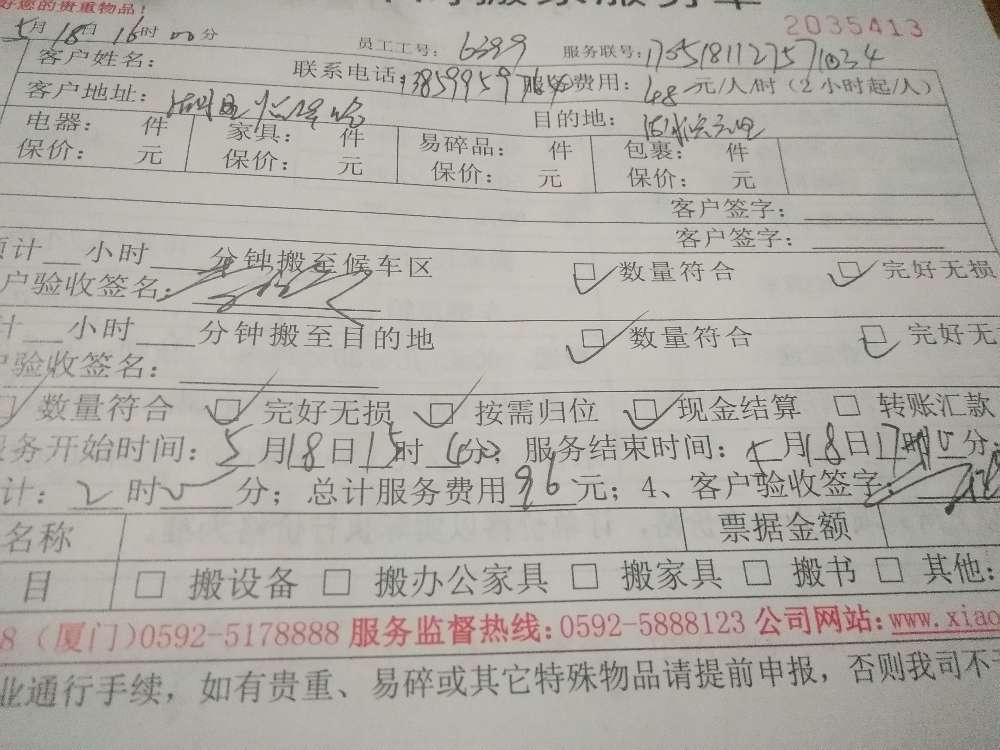 好您的贵重物品!
2035413
5月18日16时00分 员工工号: 6399 服务联号:
客户姓名: 联系电话: 服务费用: 48元/人/时(2小时起/人)
客户地址: 目的地:
电器: 件 家具: 件 易碎品: 件 包裹: 件
保价: 元 保价: 元 保价: 元 保价: 元
客户签字:
客户签字:
预计__小时____分钟搬至候车区 数量符合 完好无损
户验收签名:
计__小时____分钟搬至目的地 数量符合 完好无
户验收签名:
数量符合 完好无损 按需归位 现金结算 转账汇款
服务开始时间:5月18日15时 分; 服务结束时间:5月18日17时 分;
计:2时 分; 总计服务费用96元; 4、客户验收签字:
名称 票据金额
目 搬设备 搬办公家具 搬家具 搬书 其他:
8 (厦门)0592-5178888 服务监督热线:0592-5888123 公司网站:www.xiao
业通行手续, 如有贵重、易碎或其它特殊物品请提前申报, 否则我司不